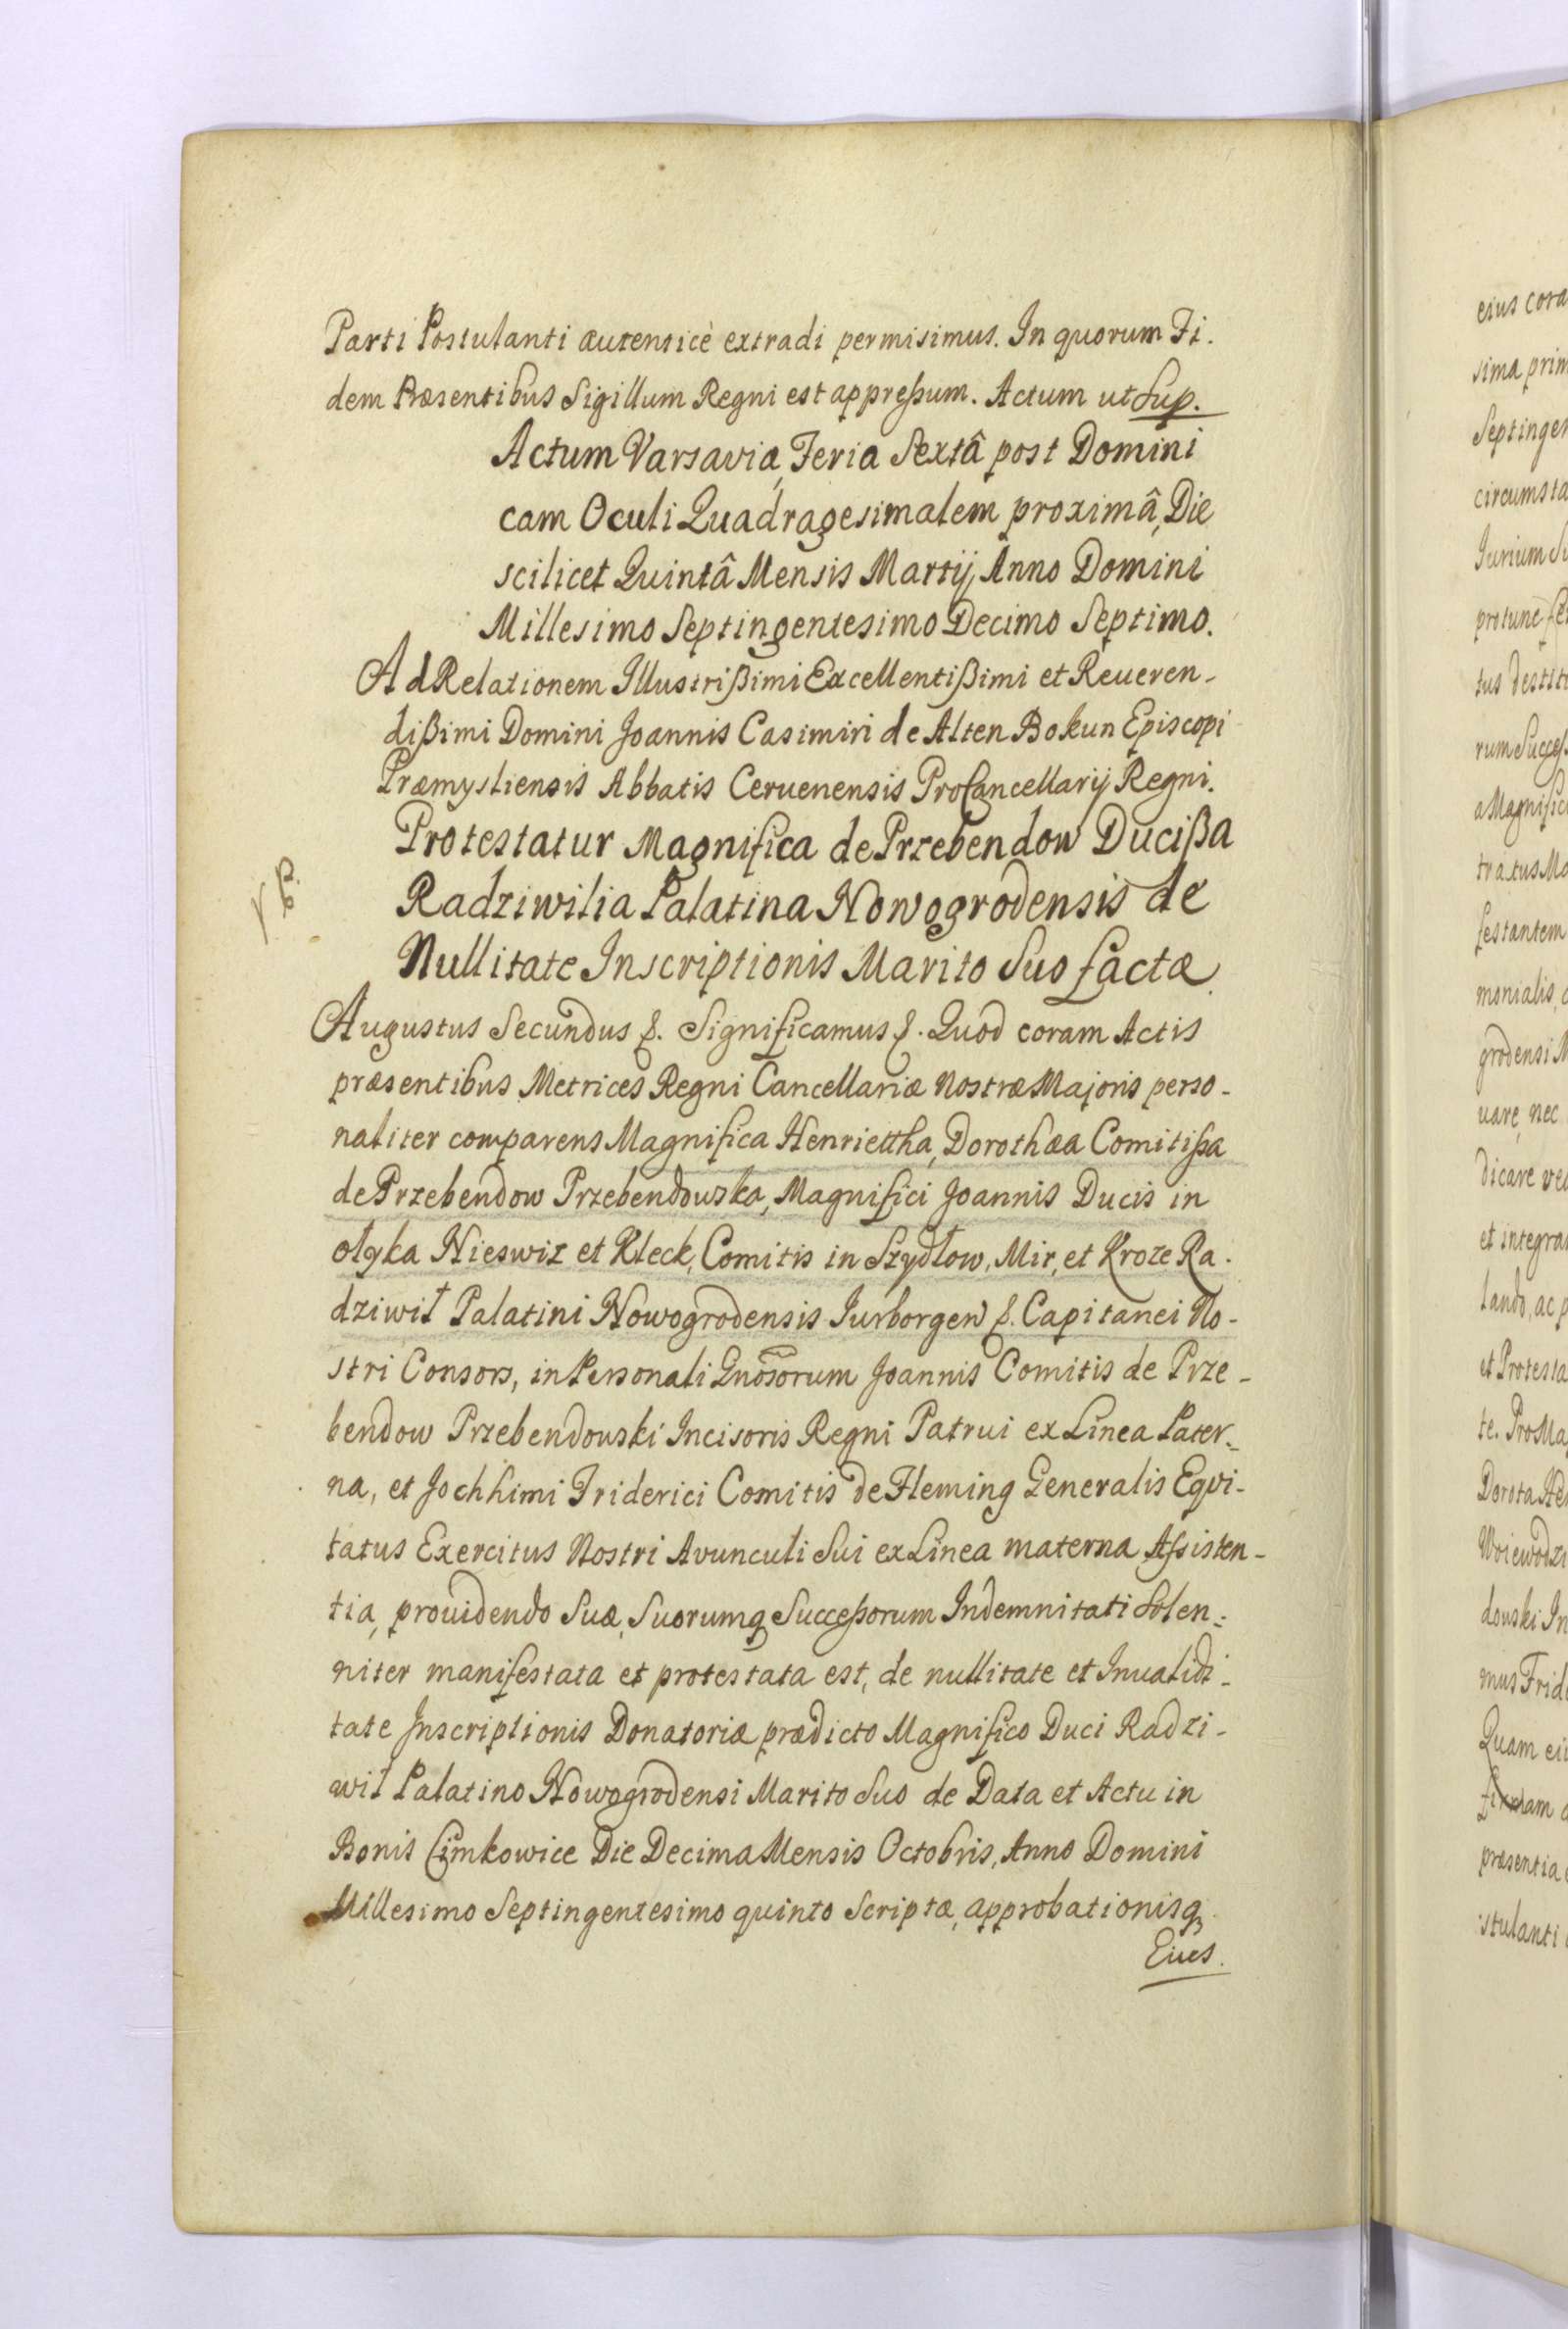 Parti Postulanti autenticè extradi permisimus. In quorum Fi.
dem Præsentibus Sigillum Regni est appreßum. Actum ut Sup.
Actum Varsaviæ, Feria Sextâ post Domini
cam Oculi Quadragesimalem proximâ, Die
scilicet Quintâ Mensis Martij Anno Domini
Millesimo Septingentesimo Decimo Septimo.
Ad Relationem Illustrißimi Excellentißimi et Reueren-
dißimi Domini Joannis Casimiri de Alten Bokun Episcopi
Præmysliensis Abbatis Ceruenensis ProCancellarij Regni.
Protestatur Magnifica de Przebendow Ducißa
Radziwilia Palatina Nowogrodensis de
Nullitate Inscriptionis Marito Suo factæ
Augustus Secundus &. Significamus &. Quod coram Actis
præsentibus Metrices Regni Cancellariæ Nostræ Majoris perso-
naliter comparens Magnifica Henriettha, Dorothæa Comitißa
de Przebendow Przebendowska, Magnifici Joannis Ducis in
ołyka Nieswiz et Kleck, Comitis in Szydłow, Mir, et Kroze Ra.
dziwił Palatini Nowogrodensis Iurborgen &. Capitanei No-
stri Consors, in Personali Gnosorum Joannis Comitis de Prze-
bendow Przebendowski Incisoris Regni Patrui ex Linea Pater-
na, et Jochhimi Friderici Comitis de Fleming Generalis Eqvi-
tatus Exercitus Nostri Avunculi Sui ex Linea materna Assisten-
tia, prouidendo Suæ, Suorumq Succeßorum Indemnitati Solen-
niter manifestata et protestata est, de nullitate et Inualidi-
tate Inscriptionis Donatoriæ prædicto Magnifico Duci Radzi-
wił Palatino Nowogrodensi Marito Suo de Data et Actu in
Bonis Cimkowice Die Decima Mensis Octobris, Anno Domini
Millesimo Septingentesimo quinto Scriptæ, approbationisq
Eius.
eius cora
sima prim
Septingen
circumsta
Iurium Su
protunc
tus destit
rum Succeß
a Magnific
tratus Ma
festantem
monialis
grodensi M
uare, nec
dicare vel
et integra
lando, ac p
et Protesta
te. Pro Ma
Dorota Hen
Woiewodzi
dowski In
mus Frid
Quam ei
præsentia
stulanti